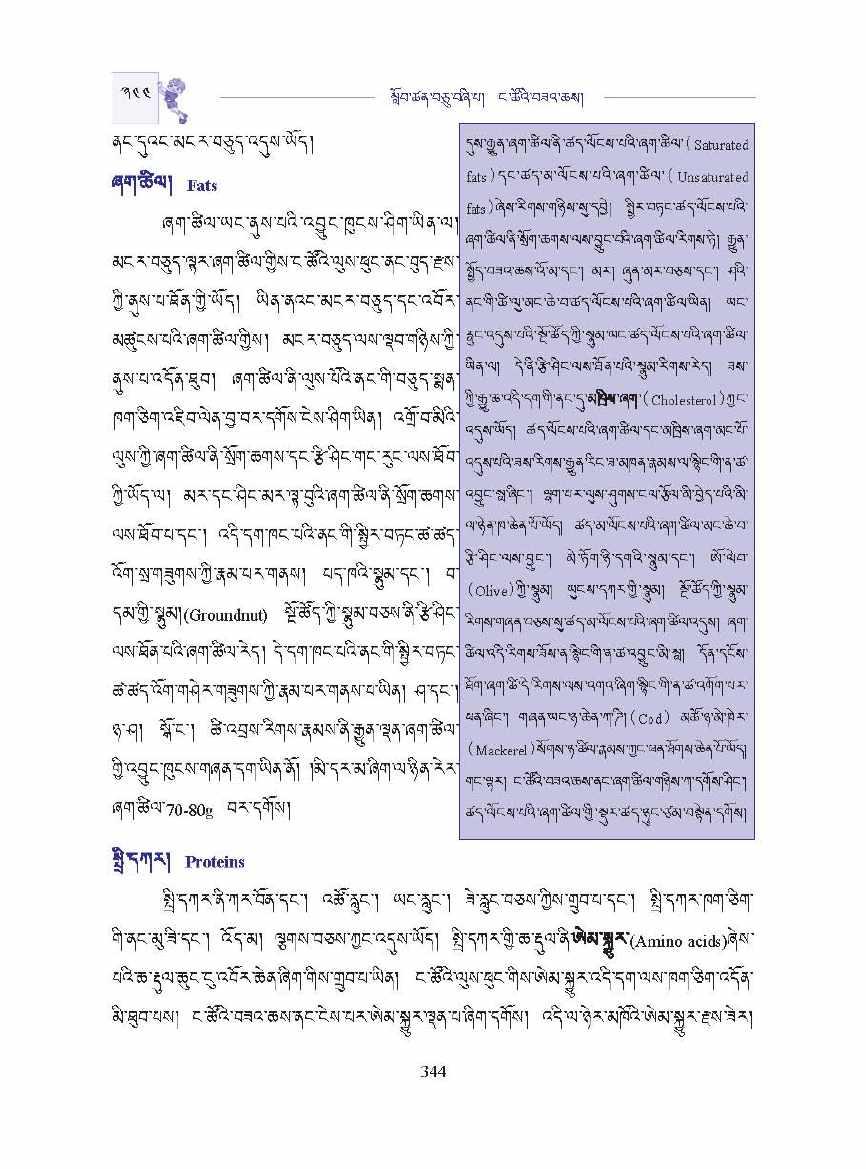 ༣༤༤
སློབ་ཚན་བཅུ་བཞི་པ། ང་ཚོའི་བཟའ་ཆས།
ནང་དུའང་མངར་བཅུད་འདུས་ཡོད།
ཞག་ཚིལ། Fats
ཞག་ཚིལ་ཡང་ནུས་པའི་འབྱུང་ཁུངས་ཤིག་ཡིན་ལ།
མངར་བཅུད་ལྟར་ཞག་ཚིལ་གྱིས་ང་ཚོའི་ལུས་ཕུང་ནང་བུད་རྫས་
ཀྱི་ནུས་པ་ཐོན་གྱི་ཡོད། ཡིན་ནའང་མངར་བཅུད་དང་འབོར་
མཚུངས་པའི་ཞག་ཚིལ་གྱིས། མངར་བཅུད་ལས་ལྡབ་གཉིས་ཀྱི་
ནུས་པ་འདོན་ཐུབ། ཞག་ཚིལ་ནི་ལུས་པོའི་ནང་གི་བཅུད་སྨན་
ཁག་ཅིག་འཇིབ་ལེན་བྱ་བར་དགོས་ངེས་ཤིག་ཡིན། འགྲོ་བ་མིའི་
ལུས་ཀྱི་ཞག་ཚིལ་ནི་སྲོག་ཆགས་དང་རྩི་ཤིང་གང་རུང་ལས་ཐོབ་
ཀྱི་ཡོད་ལ། མར་དང་ཤིང་མར་ལྟ་བུའི་ཞག་ཚིལ་ནི་སྲོག་ཆགས་
ལས་ཐོབ་པ་དང་། འདི་དག་ཁང་པའི་ནང་གི་སྤྱིར་བཏང་ཚ་ཚད་
འོག་སྲ་གཟུགས་ཀྱི་རྣམ་པར་གནས། པད་ཁའི་སྣུམ་དང་། བ་
དམ་གྱི་སྣུམ།(Groundnut) སྔོ་ཚོད་ཀྱི་སྣུམ་བཅས་ནི་རྩི་ཤིང་
ལས་ཐོན་པའི་ཞག་ཚིལ་རེད། དེ་དག་ཁང་པའི་ནང་གི་སྤྱིར་བཏང་
ཚ་ཚད་འོག་གཤེར་གཟུགས་ཀྱི་རྣམ་པར་གནས་པ་ཡིན། ཤ་དང་།
ཉ་ཤ། སྒོ་ང་། ཚི་འབྲས་རིགས་རྣམས་ནི་རྒྱུན་ལྡན་ཞག་ཚིལ་
གྱི་འབྱུང་ཁུངས་གཞན་དག་ཡིན་ནོ། །མི་དར་མ་ཞིག་ལ་ཉིན་རེར་
ཞག་ཚིལ་70-80g བར་དགོས།
དུས་རྒྱུན་ཞག་ཚིལ་ནི་ཚད་ལོངས་པའི་ཞག་ཚིལ་( Saturated
fats ) དང་ཚད་མ་ལོངས་པའི་ཞག་ཚིལ་( Unsaturated
fats )ཞེས་རིགས་གཉིས་སུ་དབྱེ། སྤྱིར་བཏང་ཚད་ལོངས་པའི་
ཞག་ཚིལ་ནི་སྲོག་ཆགས་ལས་བྱུང་བའི་ཞག་ཚིལ་རིགས་ཏེ། རྒྱུན་
སྤྱོད་བཟའ་ཆས་འོ་མ་དང་། མར། ཞུན་མར་བཅས་དང་། ཤའི་
ནང་གི་ཚི་ལུ་མང་ཆེ་བ་ཚད་ལོངས་པའི་ཞག་ཚིལ་ཡིན། ཡང་
རླང་འདུས་པའི་སྔོ་ཚོད་ཀྱི་སྣུམ་ཡང་ཚད་ལོངས་པའི་ཞག་ཚིལ་
ཡིན་ལ། དེ་ནི་རྩི་ཤིང་ལས་ཐོན་པའི་སྣུམ་རིགས་རེད། ཟས་
ཀྱི་རྒྱུ་ཆ་འདི་དག་གི་ནང་དུ་མཁྲིས་ཞག་( Cholesterol )ཀྱང་
འདུས་ཡོད། ཚད་ལོངས་པའི་ཞག་ཚིལ་དང་མཁྲིས་ཞག་མང་པོ་
འདུས་པའི་ཟས་རིགས་རྒྱུན་རིང་ཟ་མཁན་རྣམས་ལ་སྙིང་གི་ན་ཚ་
འབྱུང་སླ་ཞིང་། ལྷག་པར་ལུས་ཤུགས་ངལ་རྩོལ་མི་བྱེད་པའི་མི་
ལ་ཉེན་ཁ་ཆེན་པོ་ཡོད། ཚད་མ་ལོངས་པའི་ཞག་ཚིལ་མང་ཆེ་བ་
རྩི་ཤིང་ལས་བྱུང་། མེ་ཏོག་ཉི་དགའི་སྣུམ་དང་། ཨོ་ལིབ་
(Olive)ཀྱི་སྣུམ། ཡུངས་དཀར་གྱི་སྣུམ། སྔོ་ཚོད་ཀྱི་སྣུམ་
རིགས་གཞན་བཅས་སུ་ཚད་མ་ལོངས་པའི་ཞག་ཚིལ་འདུས། ཞག་
ཚིལ་འདི་རིགས་ཟོས་ན་སྙིང་གི་ན་ཚ་འབྱུང་མི་སླ། དོན་དངོས་
ཐོག་ཞག་ཚི་དེ་རིགས་ལས་འགའ་ཞིག་སྙིང་གི་ན་ཚ་འགོག་པར་
ཕན་ཞིང་། གཞན་ཡང་ཉ་ཆེན་ཀཱ་ཌི། (Cod) མཚོ་ཉ་མེ་ཁེར་
( Mackerel )སོགས་ཉ་ཚིལ་རྣམས་ཀྱང་ཕན་ཐོགས་ཆེན་པོ་ཡོད།
གང་ལྟར། ང་ཚོའི་བཟའ་ཆས་ནང་ཞག་ཚིལ་གཉིས་ཀ་དགོས་ཤིང་།
ཚད་ལོངས་པའི་ཞག་ཚིལ་གྱི་སྡུར་ཚད་ཉུང་ཙམ་བསྟེན་དགོས།
སྤྲི་དཀར། Proteins
སྤྲི་དཀར་ནི་ཀར་བོན་དང་། འཚོ་རླུང་། ཡང་རླུང་། ཟེ་རླུང་བཅས་ཀྱིས་གྲུབ་པ་དང་། སྤྲི་དཀར་ཁག་ཅིག་
གི་ནང་མུ་ཟི་དང་། འོད་མ། ལྕགས་བཅས་ཀྱང་འདུས་ཡོད། སྤྲི་དཀར་གྱི་ཆ་རྡུལ་ནི་ཨེམ་སྐྱུར་(Amino acids)ཞེས་
པའི་ཆ་རྡུལ་ཆུང་ངུ་འབོར་ཆེན་ཞིག་གིས་གྲུབ་པ་ཡིན། ང་ཚོའི་ལུས་ཕུང་གིས་ཨེམ་སྐྱུར་འདི་དག་ལས་ཁག་ཅིག་འདོན་
མི་ཐུབ་པས། ང་ཚོའི་བཟའ་ཆས་ནང་ངེས་པར་ཨེམ་སྐྱུར་ལྡན་པ་ཞིག་དགོས། འདི་ལ་ཉེར་མཁོའི་ཨེམ་སྐྱུར་རྫས་ཟེར།
344